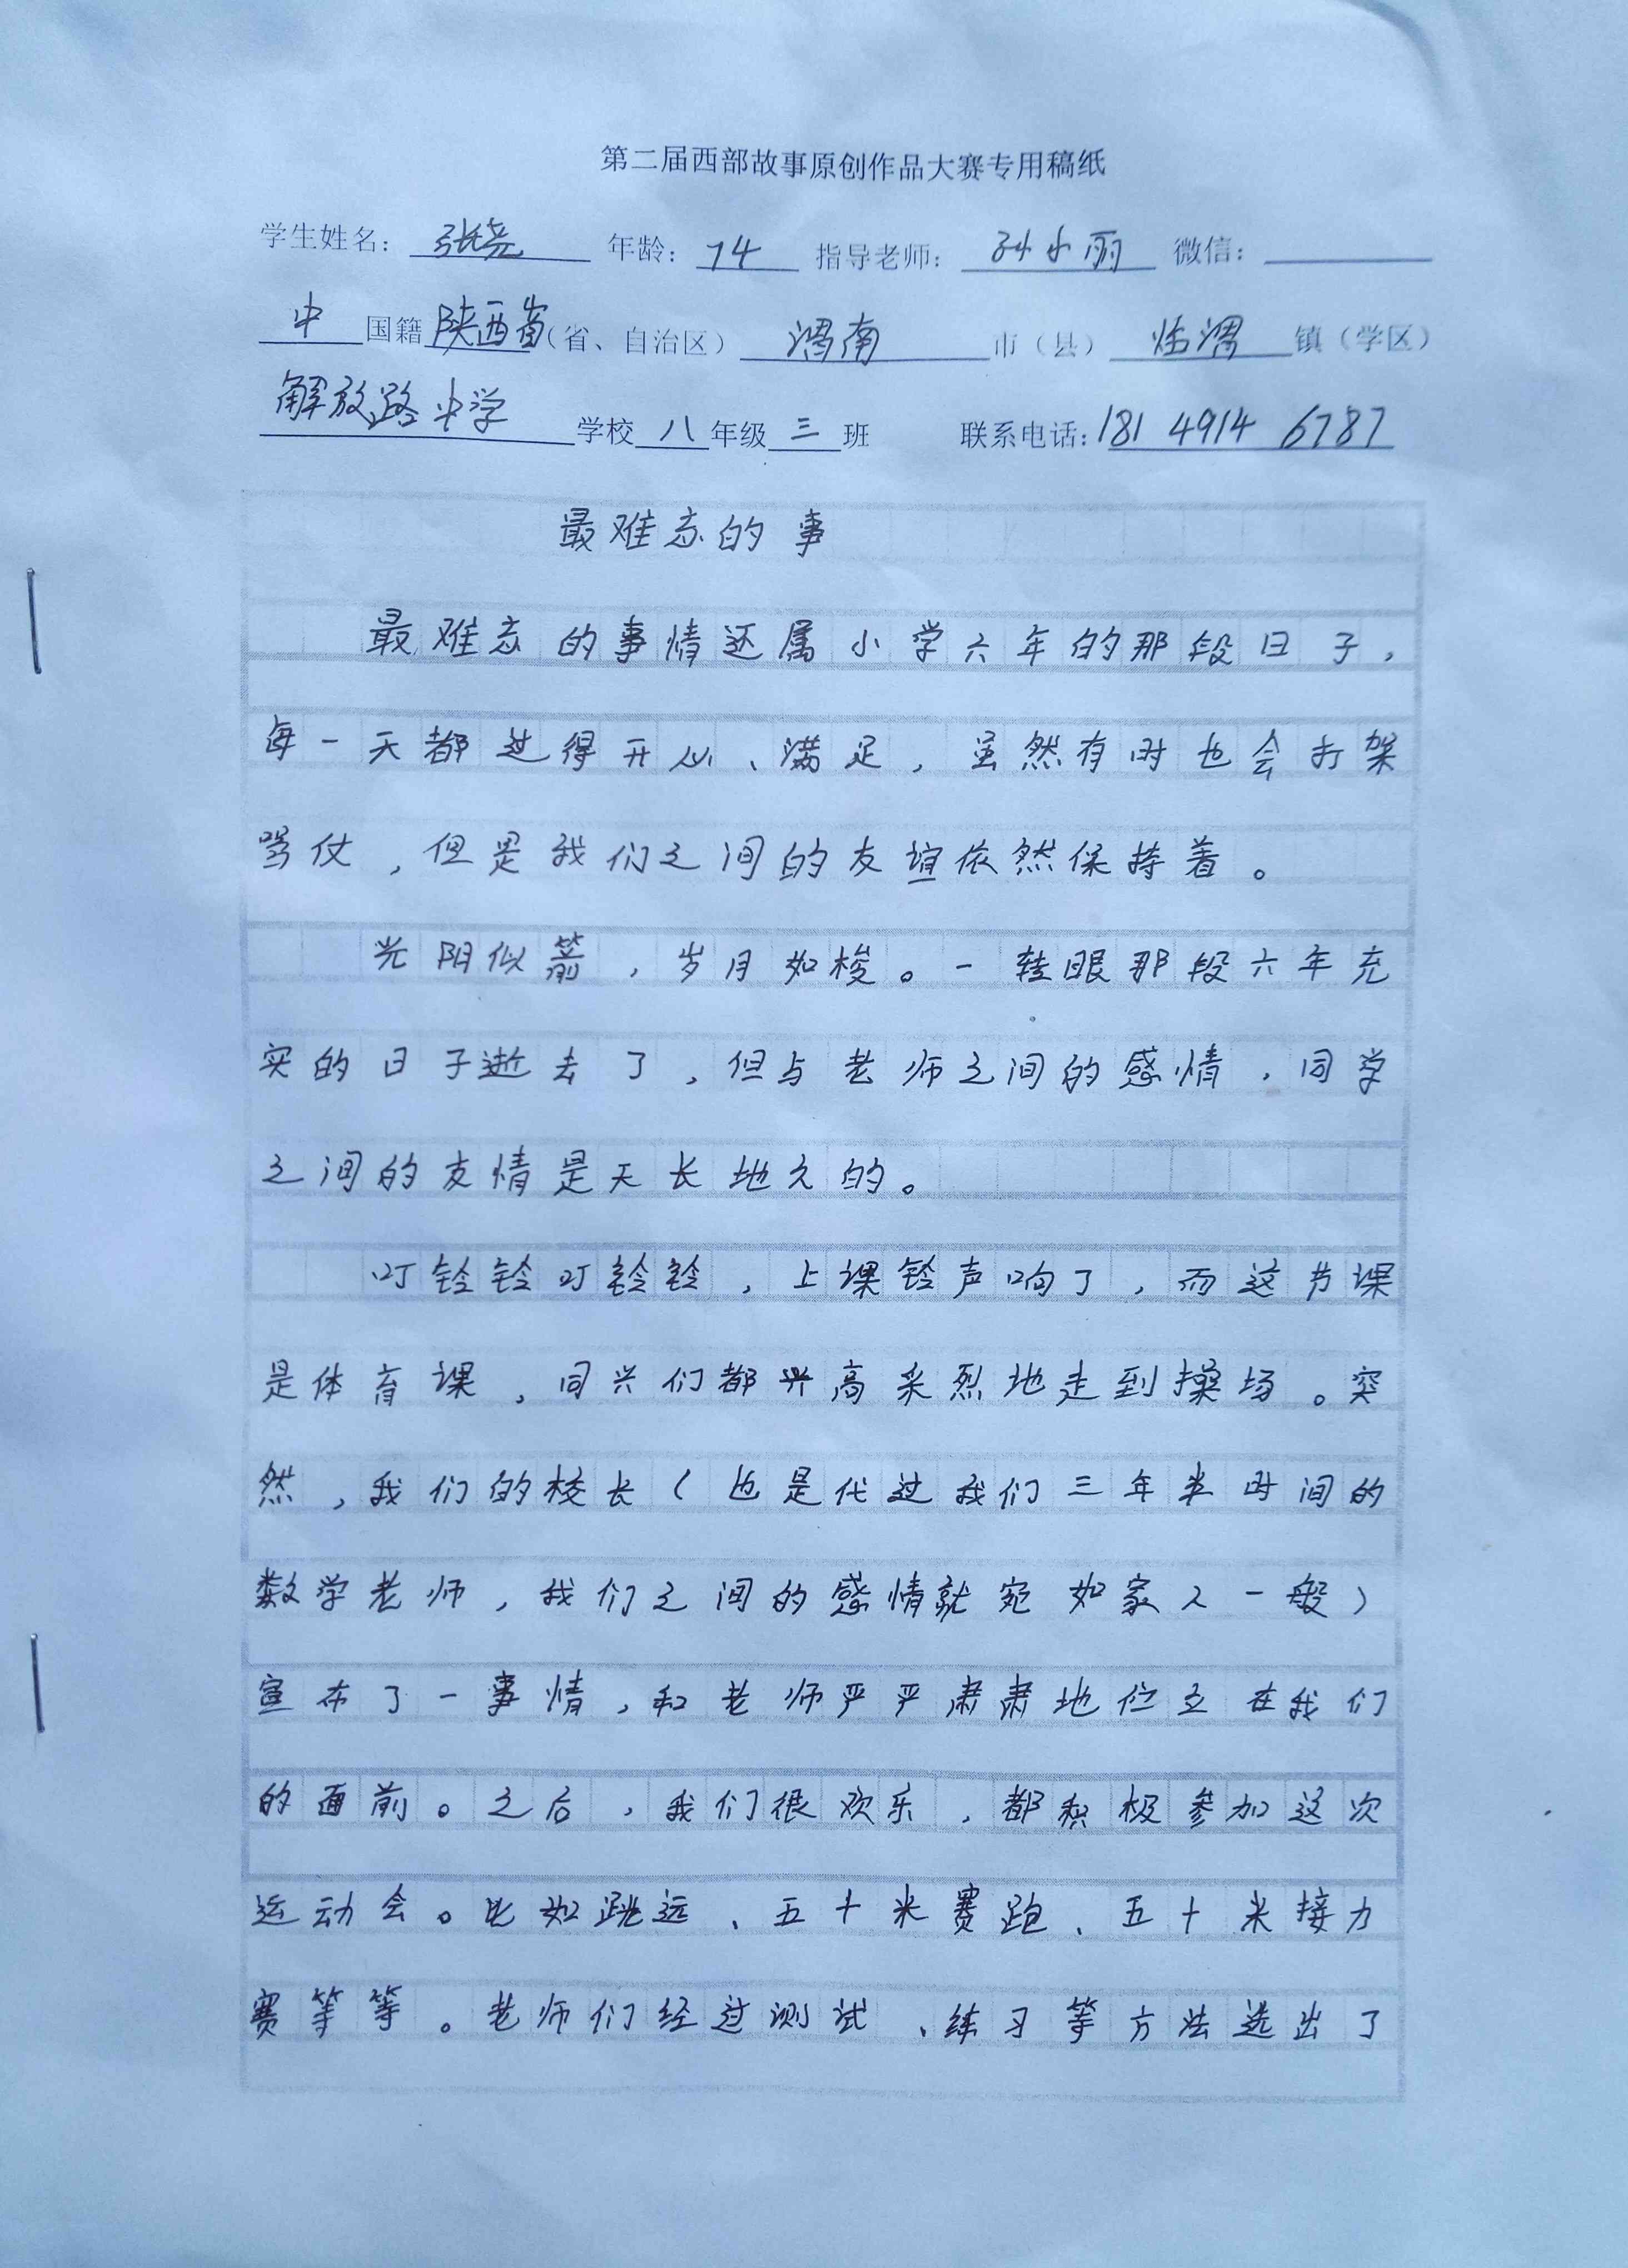 第二届西部故事原创作品大赛专用稿纸
学生姓名：张尧 年龄：14 指导老师：孙小丽 微信：
中国籍陕西省（省、自治区）渭南市（县）临渭镇（学区）
解放路中学学校八年级三班 联系电话：181 4914 6787
最难忘的事
最难忘的事情还属小学六年的那段日子，
每一天都过得开心、满足，虽然有时也会打架
骂仗，但是我们之间的友谊依然保持着。
光阴似箭，岁月如梭。一转眼那段六年充
实的日子逝去了，但与老师之间的感情，同学
之间的友情是天长地久的。
叮铃铃叮铃铃，上课铃声响了，而这节课
是体育课，同兴们都兴高采烈地走到操场。突
然，我们的校长（也是代过我们三年半时间的
数学老师，我们之间的感情就宛如家人一般）
宣布了一事情，和老师严严肃肃地伫立在我们
的面前。之后，我们很欢乐，都积极参加这次
运动会。比如跳远、五十米赛跑、五十米接力
赛等等。老师们经过测试、练习等方法选出了